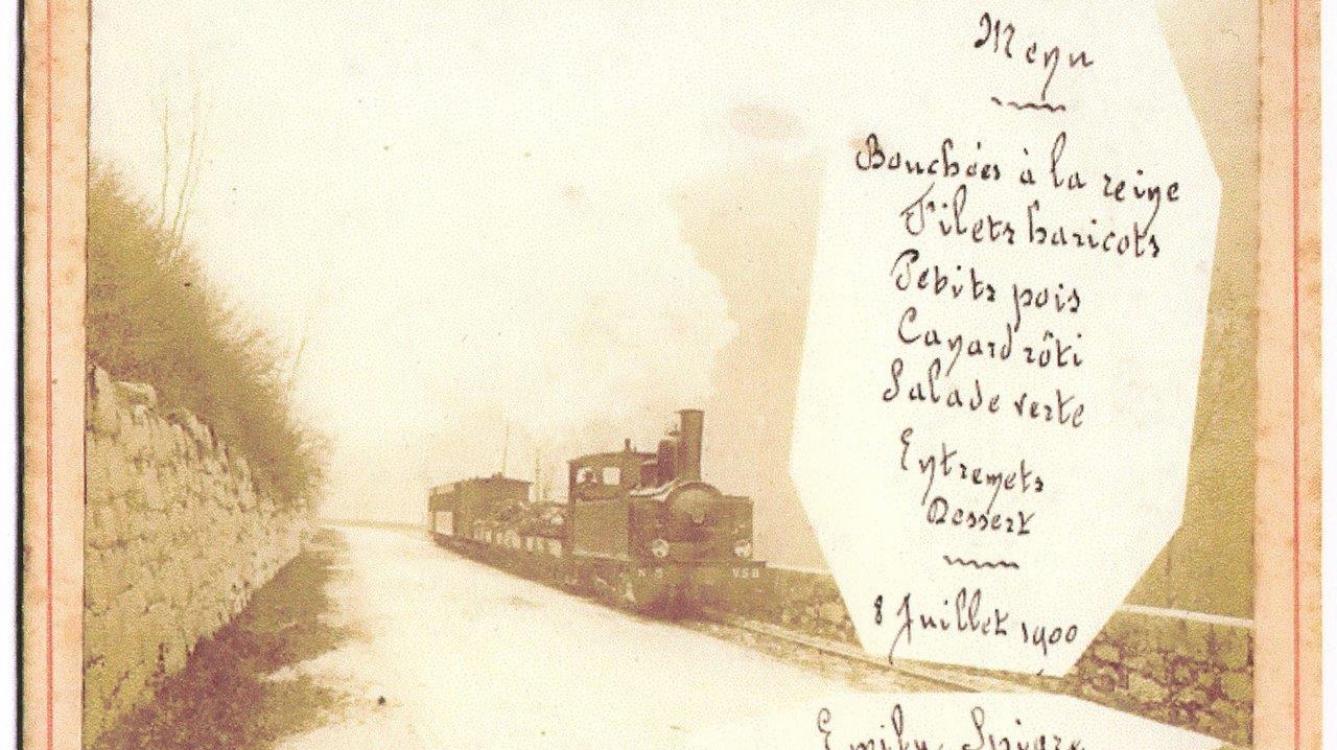 Menu
Bouchées à la reine
Filets haricots
Petits pois
Canard rôti
Salade verte
Entremets
Dessert
8 Juillet 1900
N V.S.B